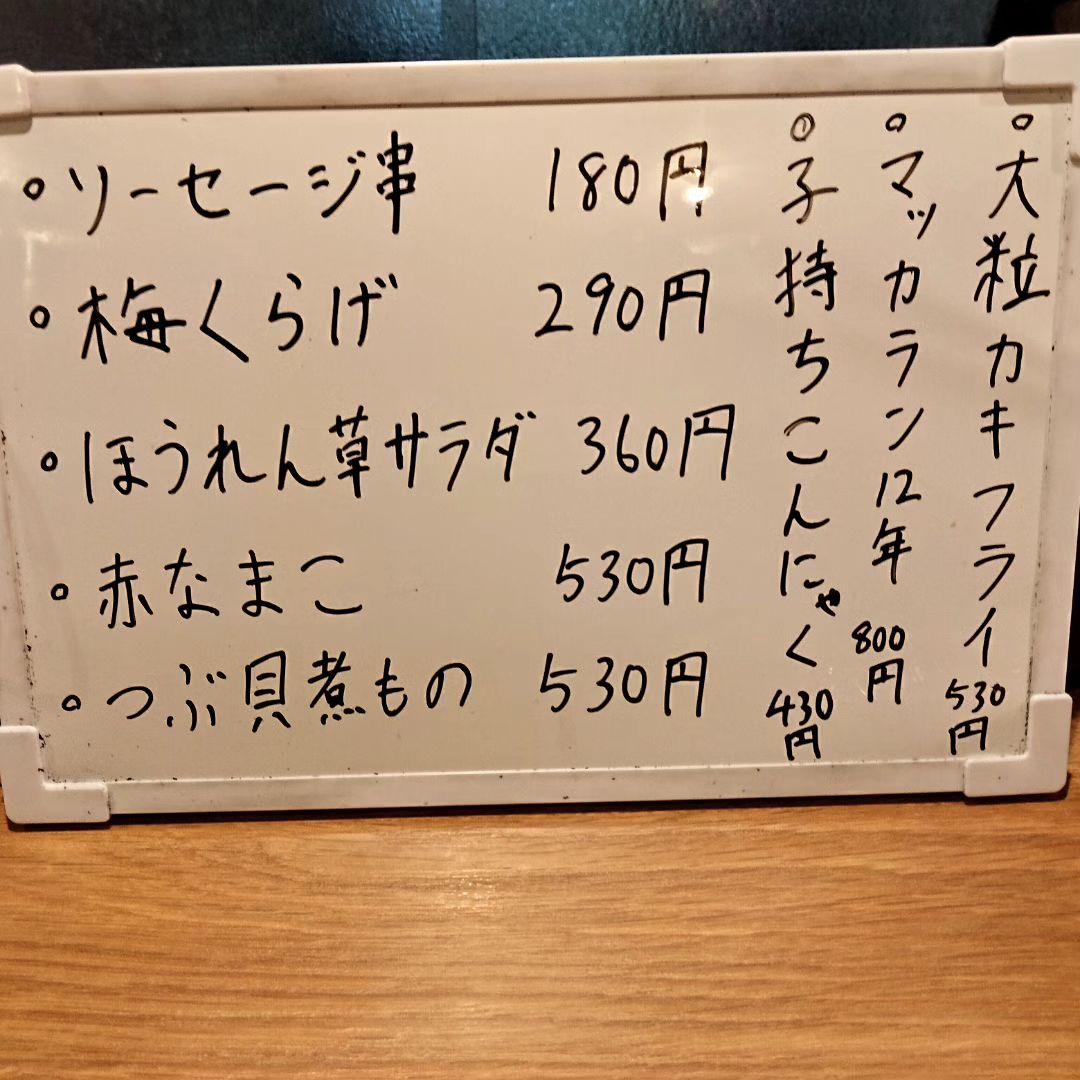 ○ソーセージ串 180円
○梅くらげ 290円
○ほうれん草サラダ 360円
○赤なまこ 530円
○つぶ貝煮もの 530円
○大粒カキフライ 530円
○マッカラン12年 800円
○子持ちこんにゃく 430円